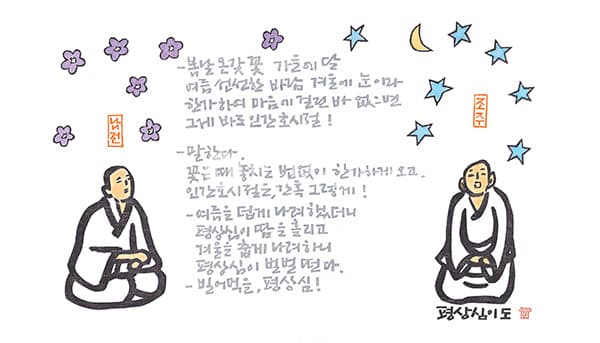 -봄날 온갖 꽃 가을에 달
여름 선선한 바람 겨울에 눈이라
한가하여 마음에 걸린 바 없으면
그게 바로 인간 호시절!
남전
조주
-말한다.
꽃은 때 놓치는 법 없이 한가하게 오고.
인간 호시절을, 간혹 그렇게!
-여름을 덥게 나려 했더니
평상심이 땀을 흘리고
겨울을 춥게 나려 하니
평상심이 벌벌 떤다.
-빌어먹을, 평상심!
평상심이도